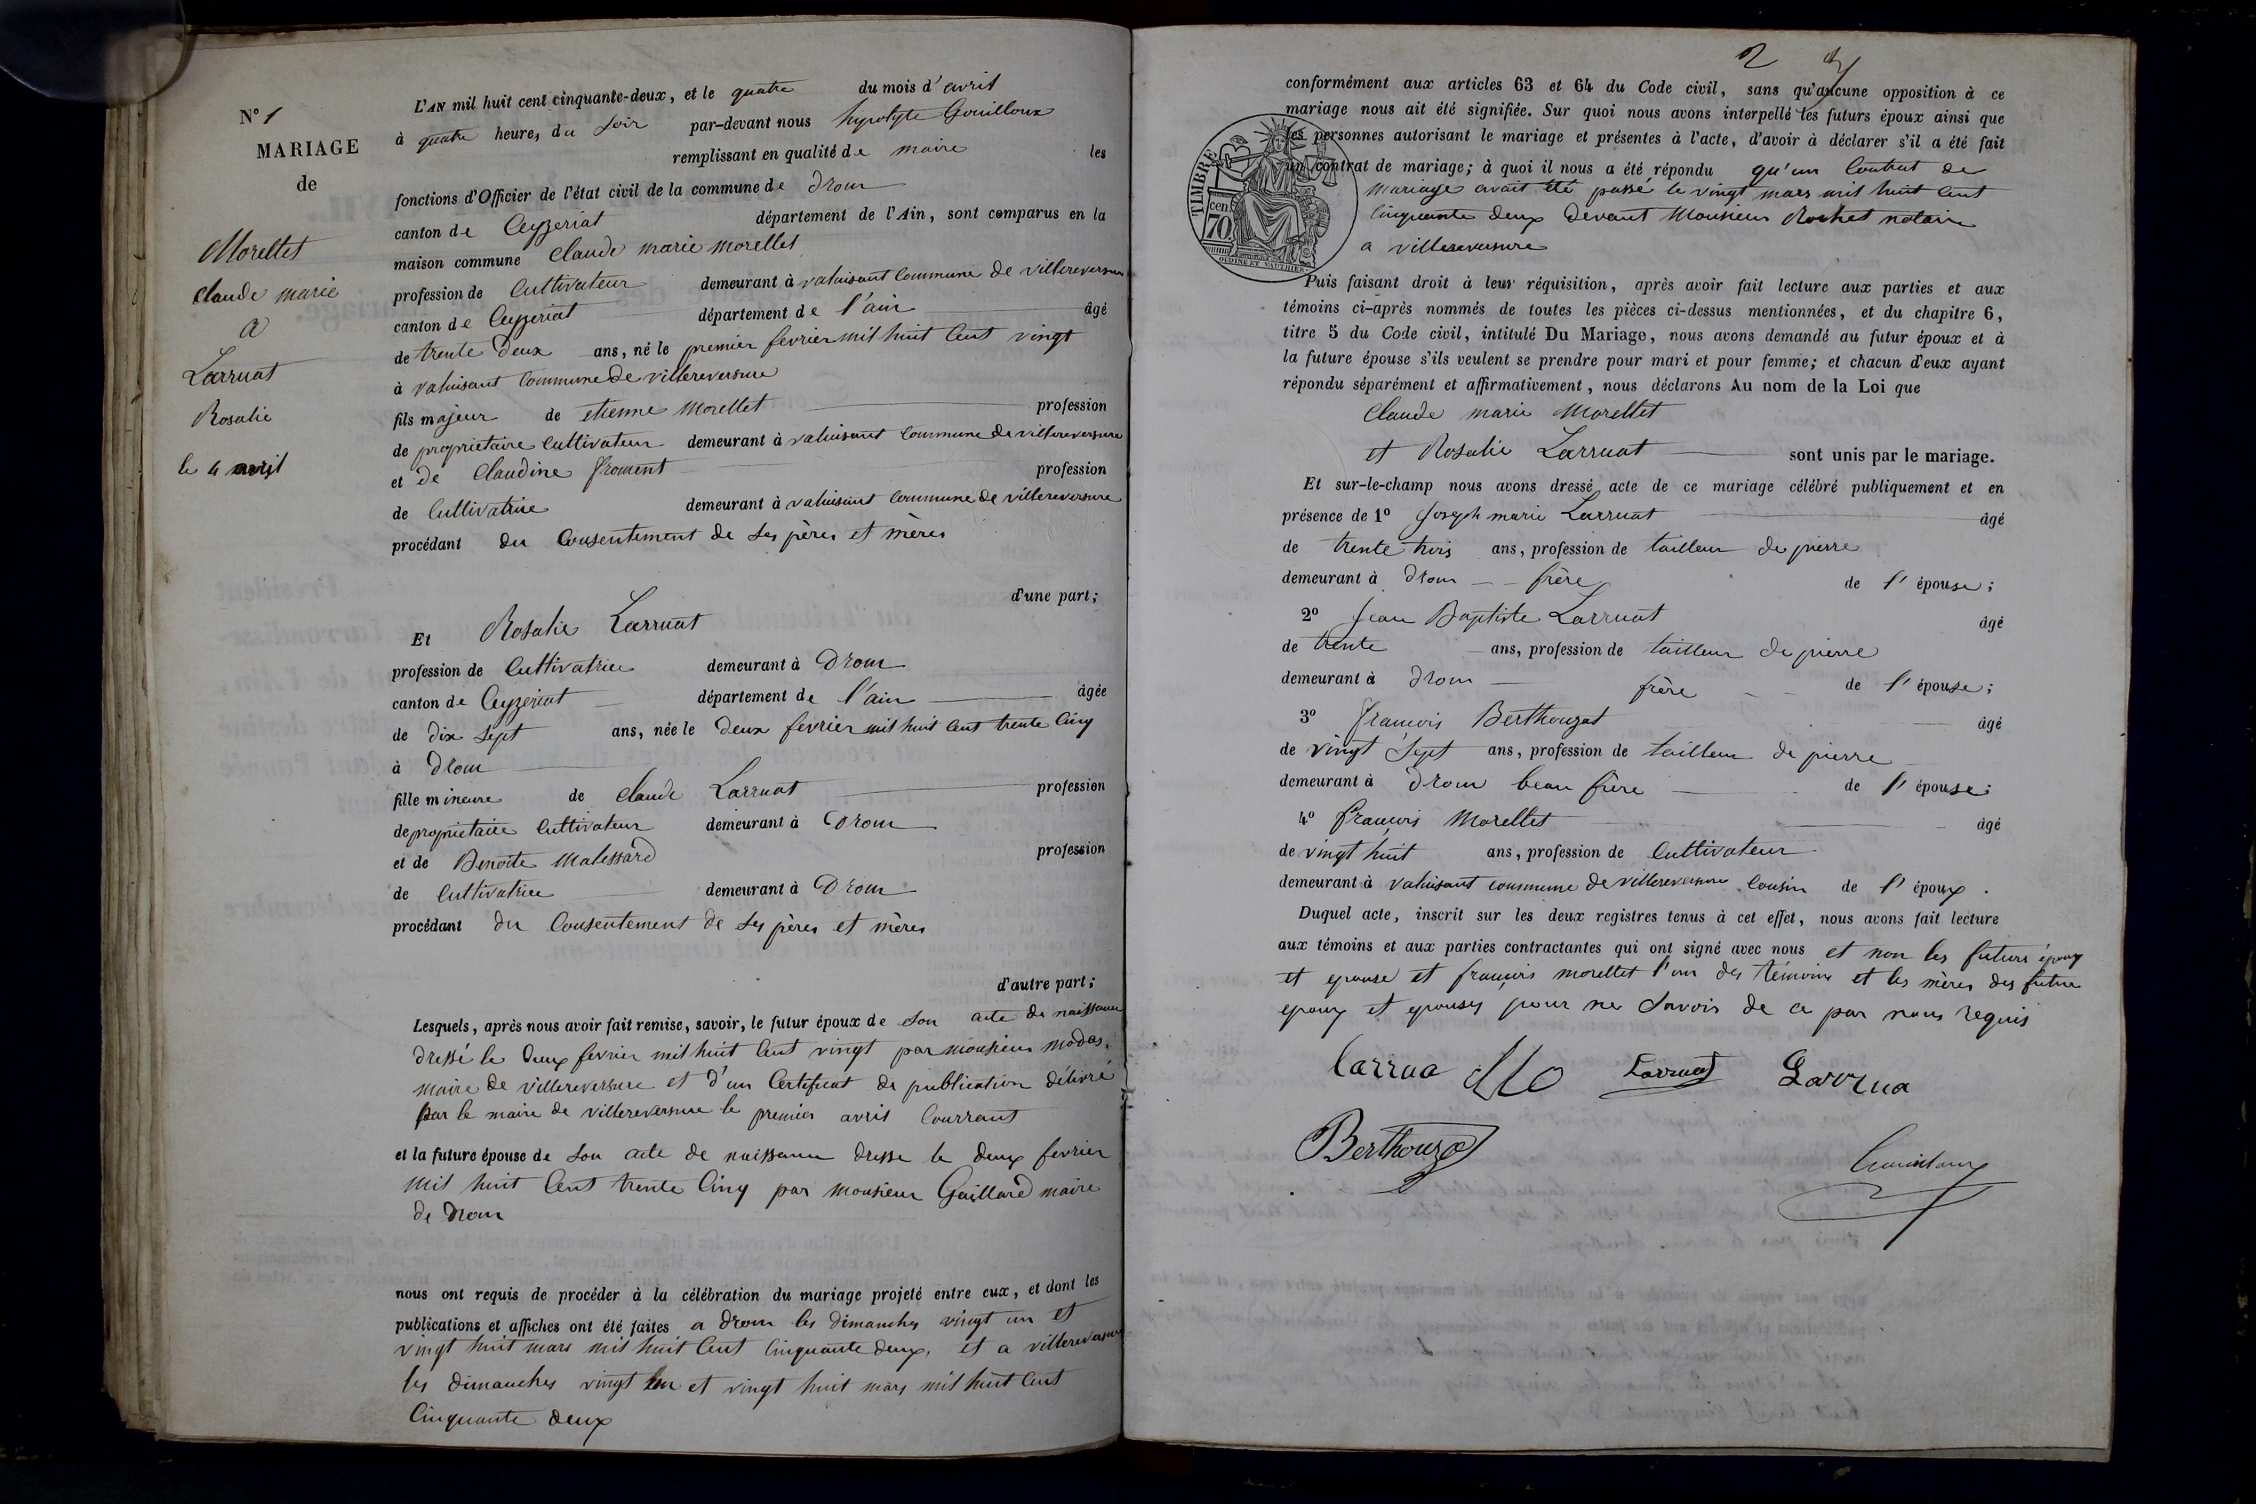 N° 1
MARIAGE
de
Morellet
Claude marie
a
Larruat
Rosalie
le 4 avril
L'AN mil huit cent cinquante-deux, et le quatre du mois d'avril
à quatre heures, du soir par-devant nous hypolyte Gouilloux
remplissant en qualité de maire les
fonctions d'Officier de l'état civil de la commune de drom
canton de Ceyzeriat département de l'Ain, sont comparus en la
maison commune Claude marie morellet
profession de Cultivateur demeurant à valuisant Commune de villereversure
canton de Ceyzeriat département de l'ain âgé
de trente deux ans, né le premier fevrier mil huit Cent vingt
à valuisant Commune de villereversure
fils majeur de etienne Morellet profession
de proprietaire Cultivateur demeurant à valuisant Commune de villereversure
et de Claudine froment profession
de Cultivatrice demeurant à valuisant Commune de villereversure
procédant du Consentement de ses pères et mères
d'une part;
Et Rosalie Larruat
profession de Cultivatrice demeurant à Drom
canton de Ceyzeriat département de l'ain âgée
de dix sept ans, née le deux fevrier mil huit Cent trente Cinq
à drom
fille mineure de Claude Larruat profession
de proprietaire Cultivateur demeurant à Drom
et de Benoite Malessard profession
de Cultivatrice demeurant à Drom
procédant du Consentement de ses pères et mères
d'autre part;
Lesquels, après nous avoir fait remise, savoir, le futur époux de son acte de naissance
dressé le deux fevrier mil huit Cent vingt par monsieur modas
maire de villereversure et d'un Certificat de publication délivré
par le maire de villereversure le premier avril Courrant
et la future épouse de son acte de naissance dresse le deux fevrier
mil huit Cent trente Cinq par monsieur Gaillard maire
de Drom
nous ont requis de procéder à la célébration du mariage projeté entre eux, et dont les
publications et affiches ont été faites a drom les dimanches vingt un et
vingt huit mars mil huit Cent Cinquante deux, et a villereversure
les dimanches vingt un et vingt huit mars mil huit Cent
Cinquante deux
2
conformément aux articles 63 et 64 du Code civil, sans qu'aucune opposition à ce
mariage nous ait été signifiée. Sur quoi nous avons interpellé les futurs époux ainsi que
les personnes autorisant le mariage et présentes à l'acte, d'avoir à déclarer s'il a été fait
un contrat de mariage; à quoi il nous a été répondu qu'un Contrat de
mariage avait été passé le vingt mars mil huit Cent
Cinquante deux devant Monsieur Rochet notaire
a villereversure
TIMBRE
70 cen
OUDINE ET VAUTHIER
Puis faisant droit à leur réquisition, après avoir fait lecture aux parties et aux
témoins ci-après nommés de toutes les pièces ci-dessus mentionnées, et du chapitre 6,
titre 5 du Code civil, intitulé Du Mariage, nous avons demandé au futur époux et à
la future épouse s'ils veulent se prendre pour mari et pour femme; et chacun d'eux ayant
répondu séparément et affirmativement, nous déclarons Au nom de la Loi que
Claude marie Morellet
et Rosalie Larruat sont unis par le mariage.
Et sur-le-champ nous avons dressé acte de ce mariage célébré publiquement et en
présence de 1° Joseph marie Larruat âgé
de trente trois ans, profession de tailleur de pierre
demeurant à Drom frère de l'épouse;
2° Jean Baptiste Larruat âgé
de trente ans, profession de tailleur de pierre
demeurant à drom frère de l'épouse;
3° francois Berthouzat âgé
de vingt sept ans, profession de tailleur de pierre
demeurant à drom beau frère de l'épouse;
4° francois Morellet âgé
de vingt huit ans, profession de Cultivateur
demeurant à valuisant commune de villereversure Cousin de l'époux.
Duquel acte, inscrit sur les deux registres tenus à cet effet, nous avons fait lecture
aux témoins et aux parties contractantes qui ont signé avec nous et non les future époux
et epouse et francois morellet l'un des témoins et les mères des future
epoux et epouses pour ne savoir de ce par nous requis
Larrua Mo Larruat Larrua
Berthouza Gouilloux